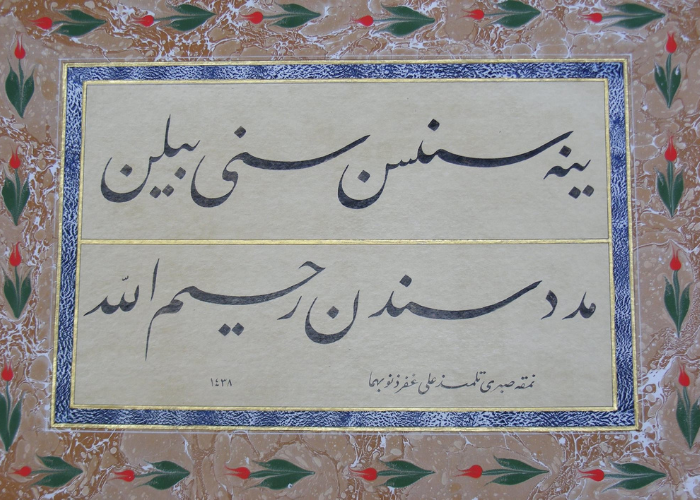 ینه سنسن سنی بیلن
مدد سندن رحیم الله
نمقه صبری تلمیذ علی غفر ذنوبهما
١٤٣٨